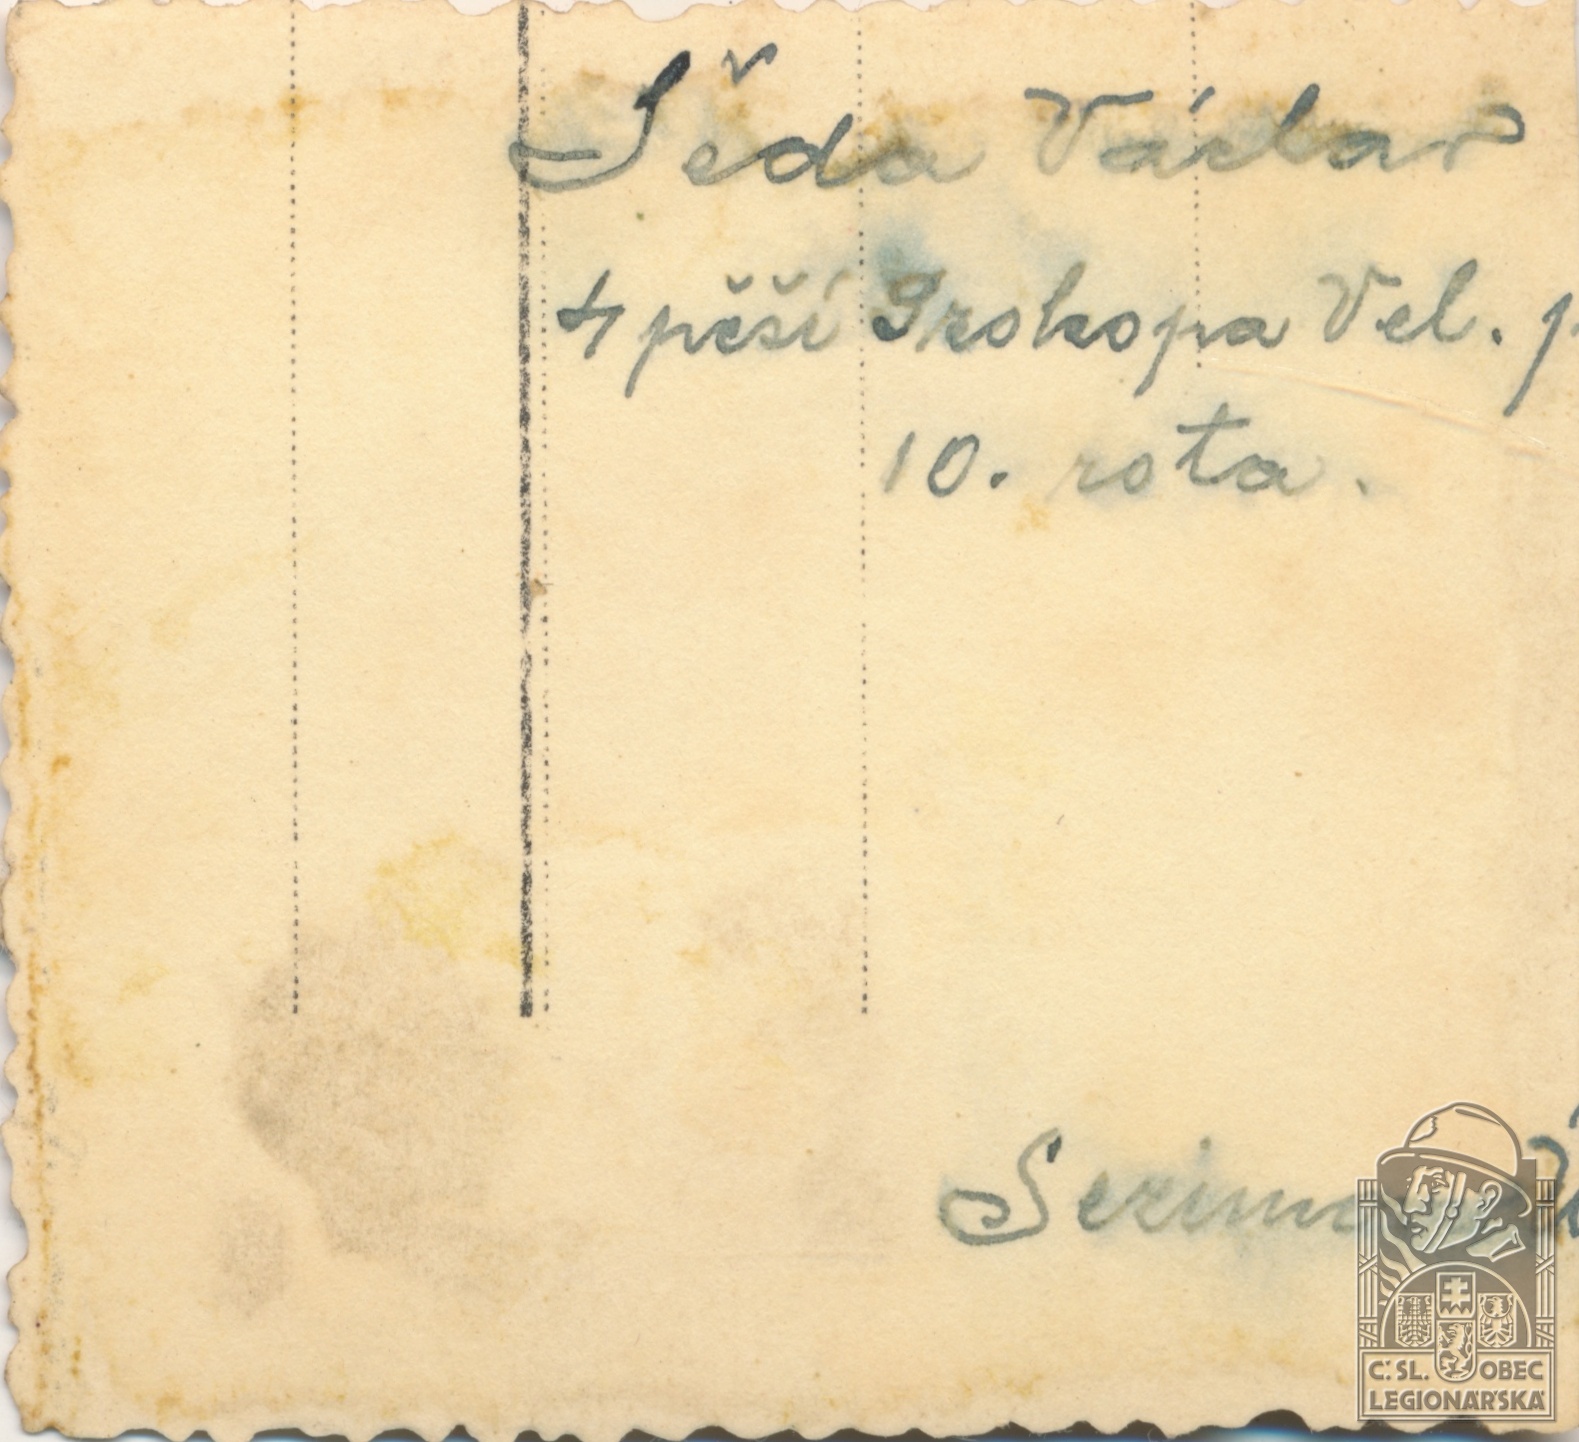 Šeda Václav
4 pěší Prokopa Vel. p
10. rota.
Sezimo
Č.SL. OBEC
LEGIONÁŘSKÁ